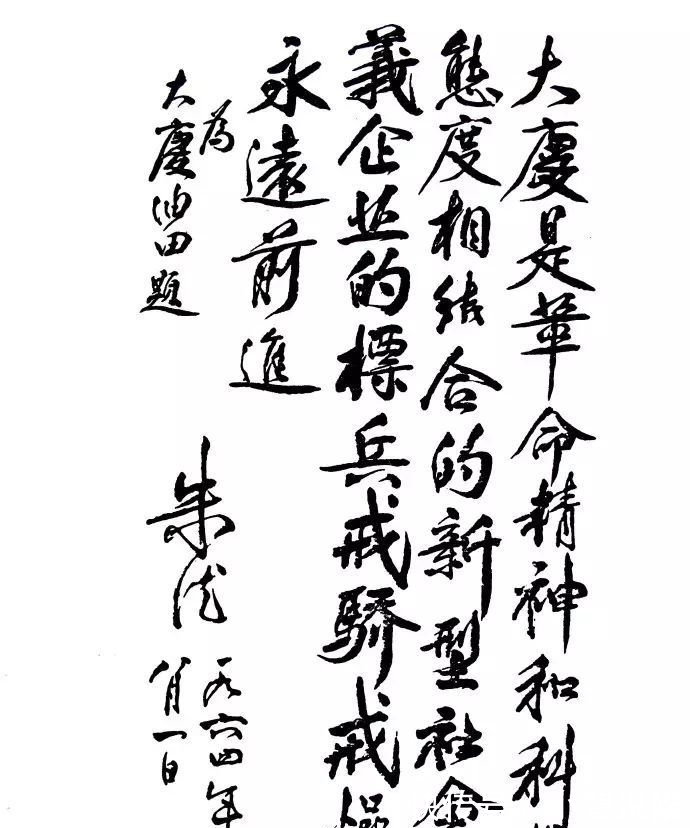 大慶是革命精神和科
態度相結合的新型社會
義企业的標兵戒驕戒躁
永遠前進
為
大慶油田題
朱德
一九六四年
八月一日